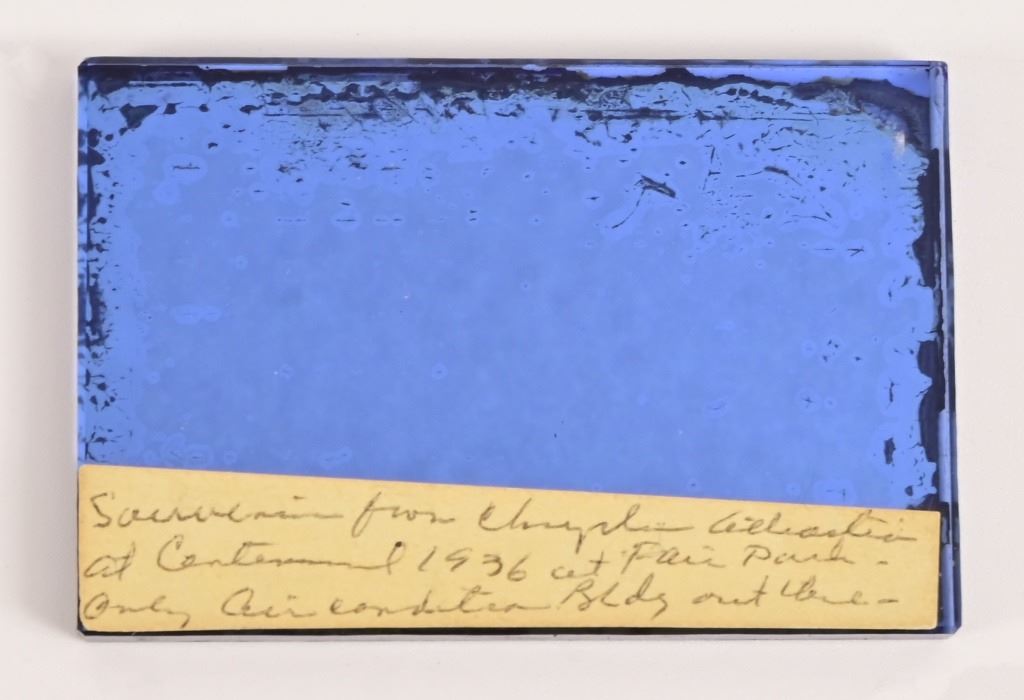 Souvenir from Chrysler Attraction
at Centennial 1936 at Fair Park.
Only Air condition Bldg out there-